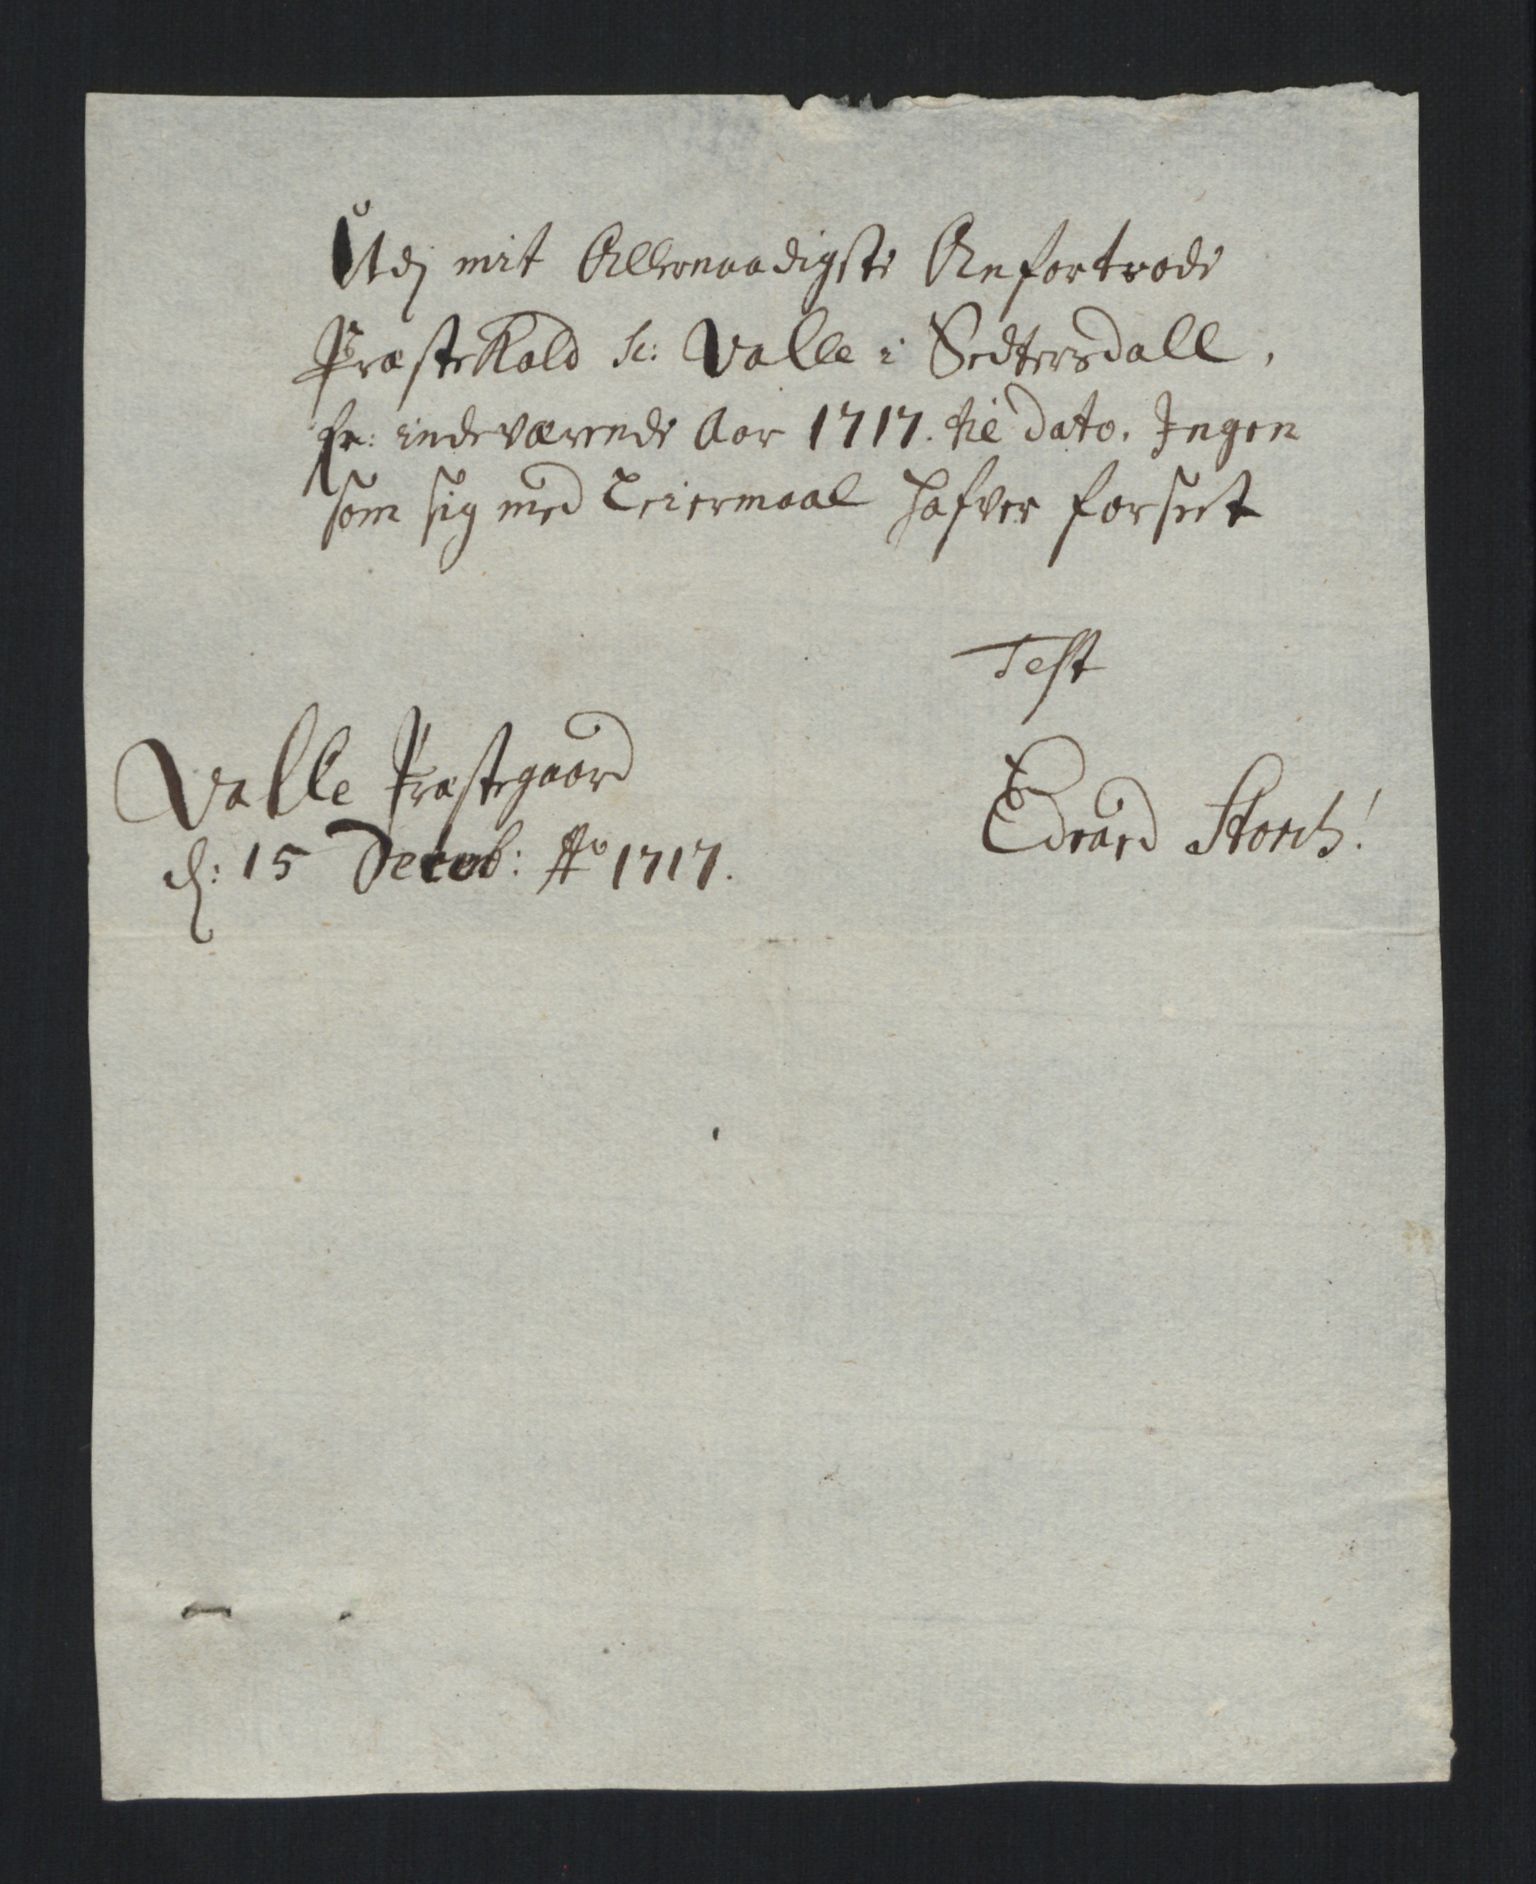 Udj mit Allernaadigste Anfortrode
Præste Kald sc: Valle i Sedtersdall,
er indeværende Aar 1717. til Dato. Ingen
som sig med Leiermaal hafver forseet
Test
Valle Præstegaard
d: 15 Decemb: Ao 1717.
Edvard Storch!